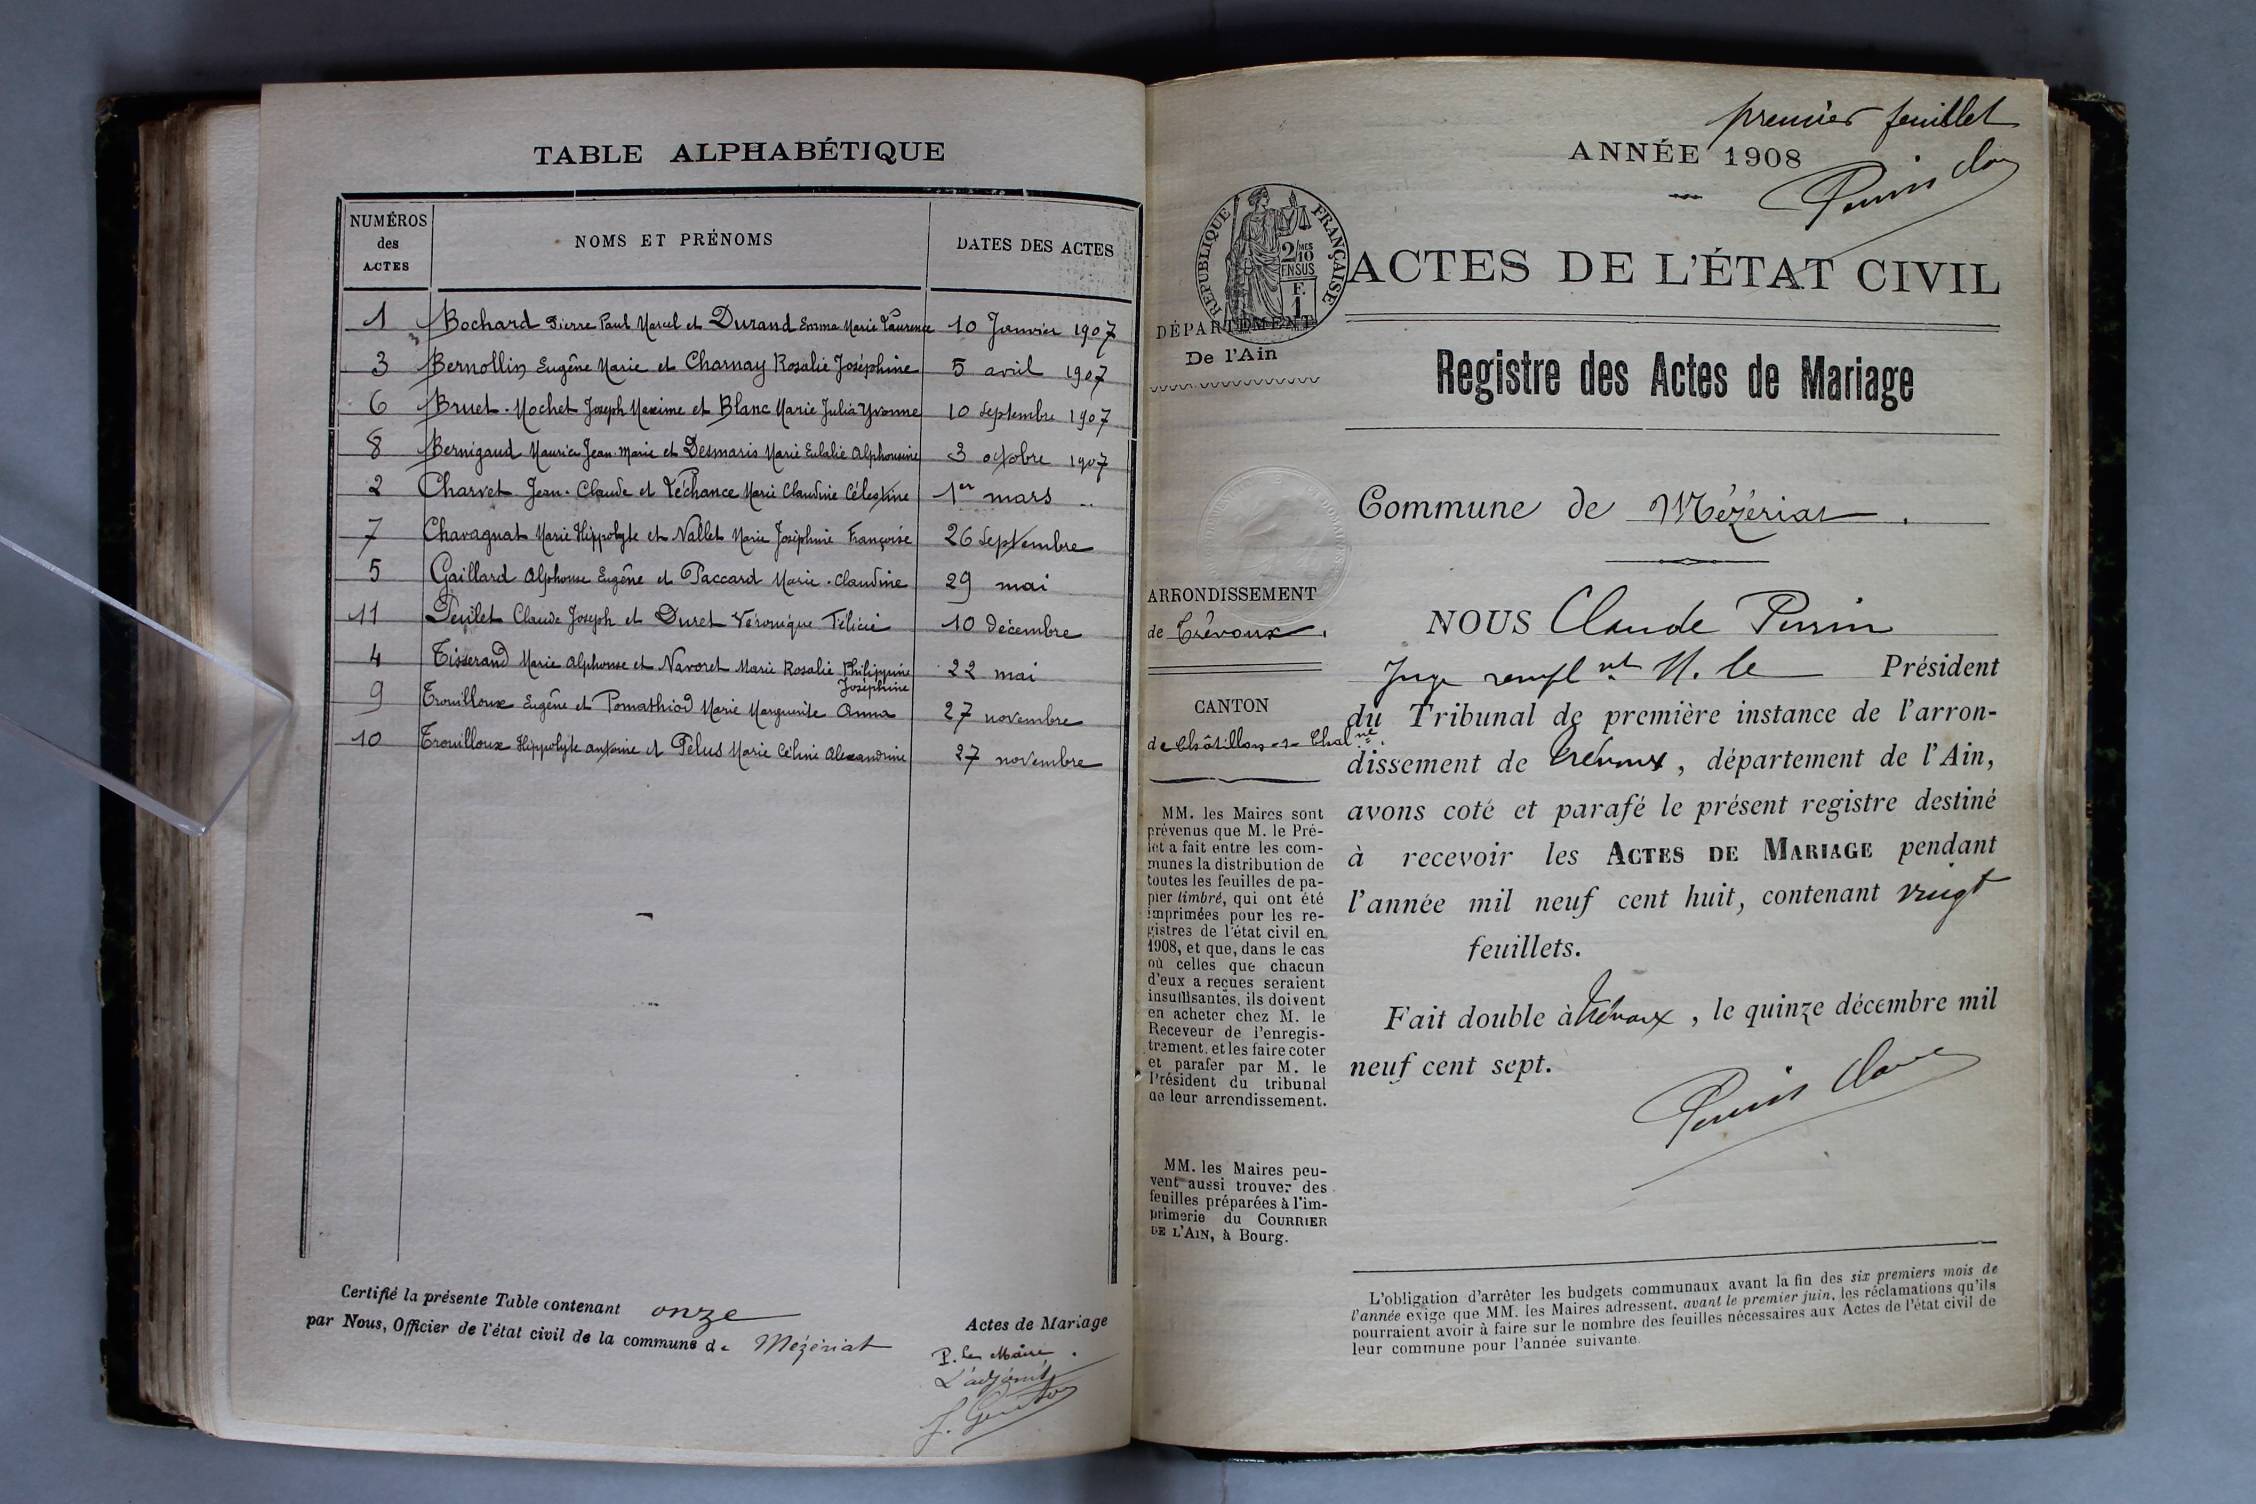 TABLE ALPHABÉTIQUE
NUMÉROS des ACTES NOMS ET PRÉNOMS DATES DES ACTES
1 Bochard Pierre Paul Marcel et Durand Emma Marie Laurence 10 Janvier 1907
3 Bernollin Eugène Marie et Charnay Rosalie Joséphine 5 avril 1907
6 Bruet-Mochet Joseph Maxime et Blanc Marie Julia Yvonne 10 Septembre 1907
8 Bernigaud Maurice Jean-Marie et Desmaris Marie Eulalie Alphonsine 3 octobre 1907
2 Charvet Jean-Claude et Léchance Marie Claudine Célestine 1er mars
7 Chavagnat Marie Hippolyte et Nallet Marie Joséphine Françoise 26 Septembre
5 Gaillard Alphonse Eugène et Paccard Marie-Claudine 29 mai
11 Claude Joseph et Duret Véronique Félicie 10 décembre
4 Tisserand Marie Alphonse et Navoret Marie Rosalie Philippine 22 mai
Joséphine
9 Trouilloux Eugène et Pomathiod Marie Marguerite Anna 27 novembre
10 Trouilloux Hippolyte Antoine et Pelus Marie Céline Alexandrine 27 novembre
Certifié la présente Table contenant onze Actes de Mariage
par Nous, Officier de l'état civil de la commune de Mézériat
P. le Maire
L'adjoint
premier feuillet
ANNÉE 1908
RÉPUBLIQUE FRANÇAISE
2/10 MES
EN SUS
F. 1
ACTES DE L'ÉTAT CIVIL
DÉPARTEMENT
De l'Ain
Registre des Actes de Mariage
Commune de Mézériat
ARRONDISSEMENT
de Trévoux
CANTON
de Châtillon-s-Chalne
MM. les Maires sont
prévenus que M. le Pré-
fet a fait entre les com-
munes la distribution de
toutes les feuilles de pa-
pier timbré, qui ont été
imprimées pour les re-
gistres de l'état civil en
1908, et que, dans le cas
où celles que chacun
d'eux a reçues seraient
insuffisantes, ils doivent
en acheter chez M. le
Receveur de l'enregis-
trement, et les faire coter
et parafer par M. le
Président du tribunal
de leur arrondissement.
MM. les Maires peu-
vent aussi trouver des
feuilles préparées à l'im-
primerie du COURRIER
DE L'AIN, à Bourg.
NOUS Claude Perrin
Juge remplnt M. le Président
du Tribunal de première instance de l'arron-
dissement de Trévoux, département de l'Ain,
avons coté et parafé le présent registre destiné
à recevoir les ACTES DE MARIAGE pendant
l'année mil neuf cent huit, contenant vingt
feuillets.
Fait double à Trévoux, le quinze décembre mil
neuf cent sept.
L'obligation d'arrêter les budgets communaux avant la fin des six premiers mois de
l'année exige que MM. les Maires adressent, avant le premier juin, les réclamations qu'ils
pourraient avoir à faire sur le nombre des feuilles nécessaires aux Actes de l'état civil de
leur commune pour l'année suivante.